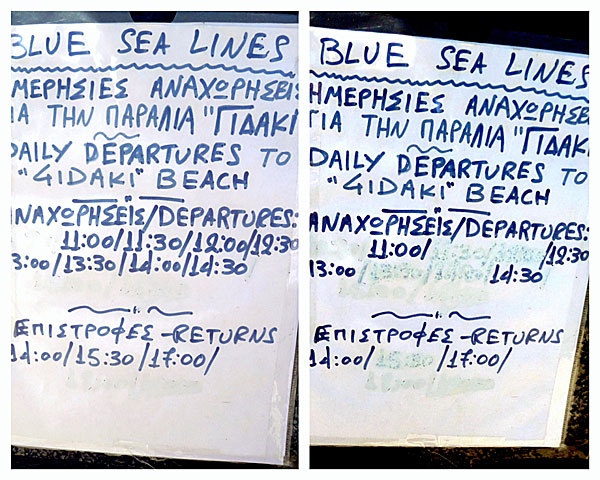 BLUE SEA LINES
ΗΜΕΡΗΣΙΕΣ ΑΝΑΧΩΡΗΣΕΙΣ
ΓΙΑ ΤΗΝ ΠΑΡΑΛΙΑ "ΓΙΔΑΚΙ
DAILY DEPARTURES TO
"GIDAKI" BEACH
ΑΝΑΧΩΡΗΣΕΙΣ/DEPARTURES:
11:00/11:30/12:00/12:30
13:00/13:30/14:00/14:30
ΕΠΙΣΤΡΟΦΕΣ-RETURNS
14:00/15:30/17:00/
BLUE SEA LINES
ΗΜΕΡΗΣΙΕΣ ΑΝΑΧΩΡΗΣΕΙΣ
ΓΙΑ ΤΗΝ ΠΑΡΑΛΙΑ "ΓΙΔΑΚΙ
DAILY DEPARTURES TO
"GIDAKI" BEACH
ΑΝΑΧΩΡΗΣΕΙΣ/DEPARTURES:
11:00/ /12:30
13:00 14:30
ΕΠΙΣΤΡΟΦΕΣ-RETURNS
14:00/15:30/17:00/